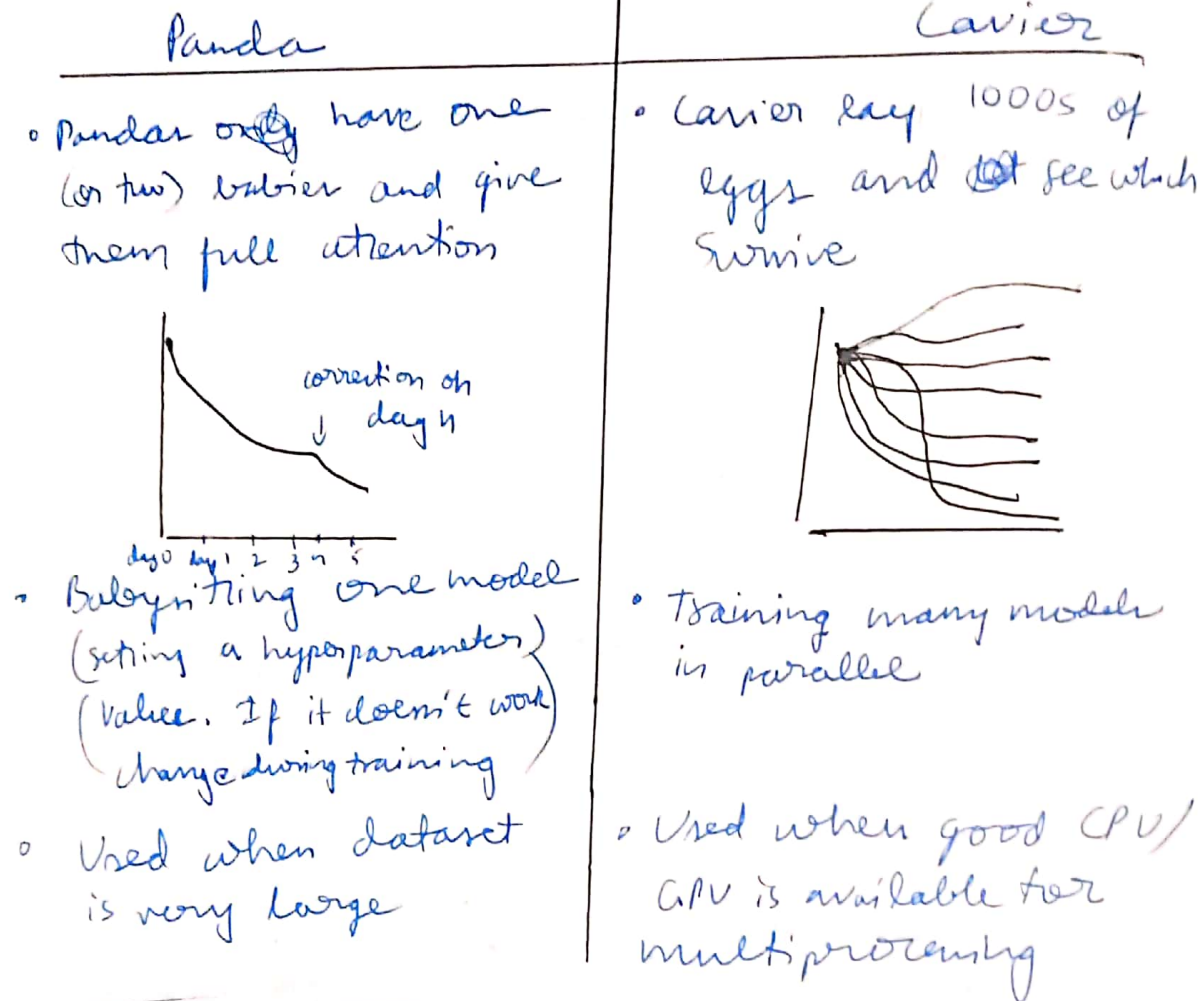 Panda
• Pandas only have one
(or two) babies and give
them full attention
correction on
day 4
day 0 day 1 2 3 4 5
• Babysitting one model
(setting a hyperparameter)
(value. If it doesn't work
change during training)
• Used when dataset
is very large
Cavier
• Cavier lay 1000s of
eggs and see which
survive
• Training many models
in parallel
• Used when good CPU/
GPU is available for
multiprocessing